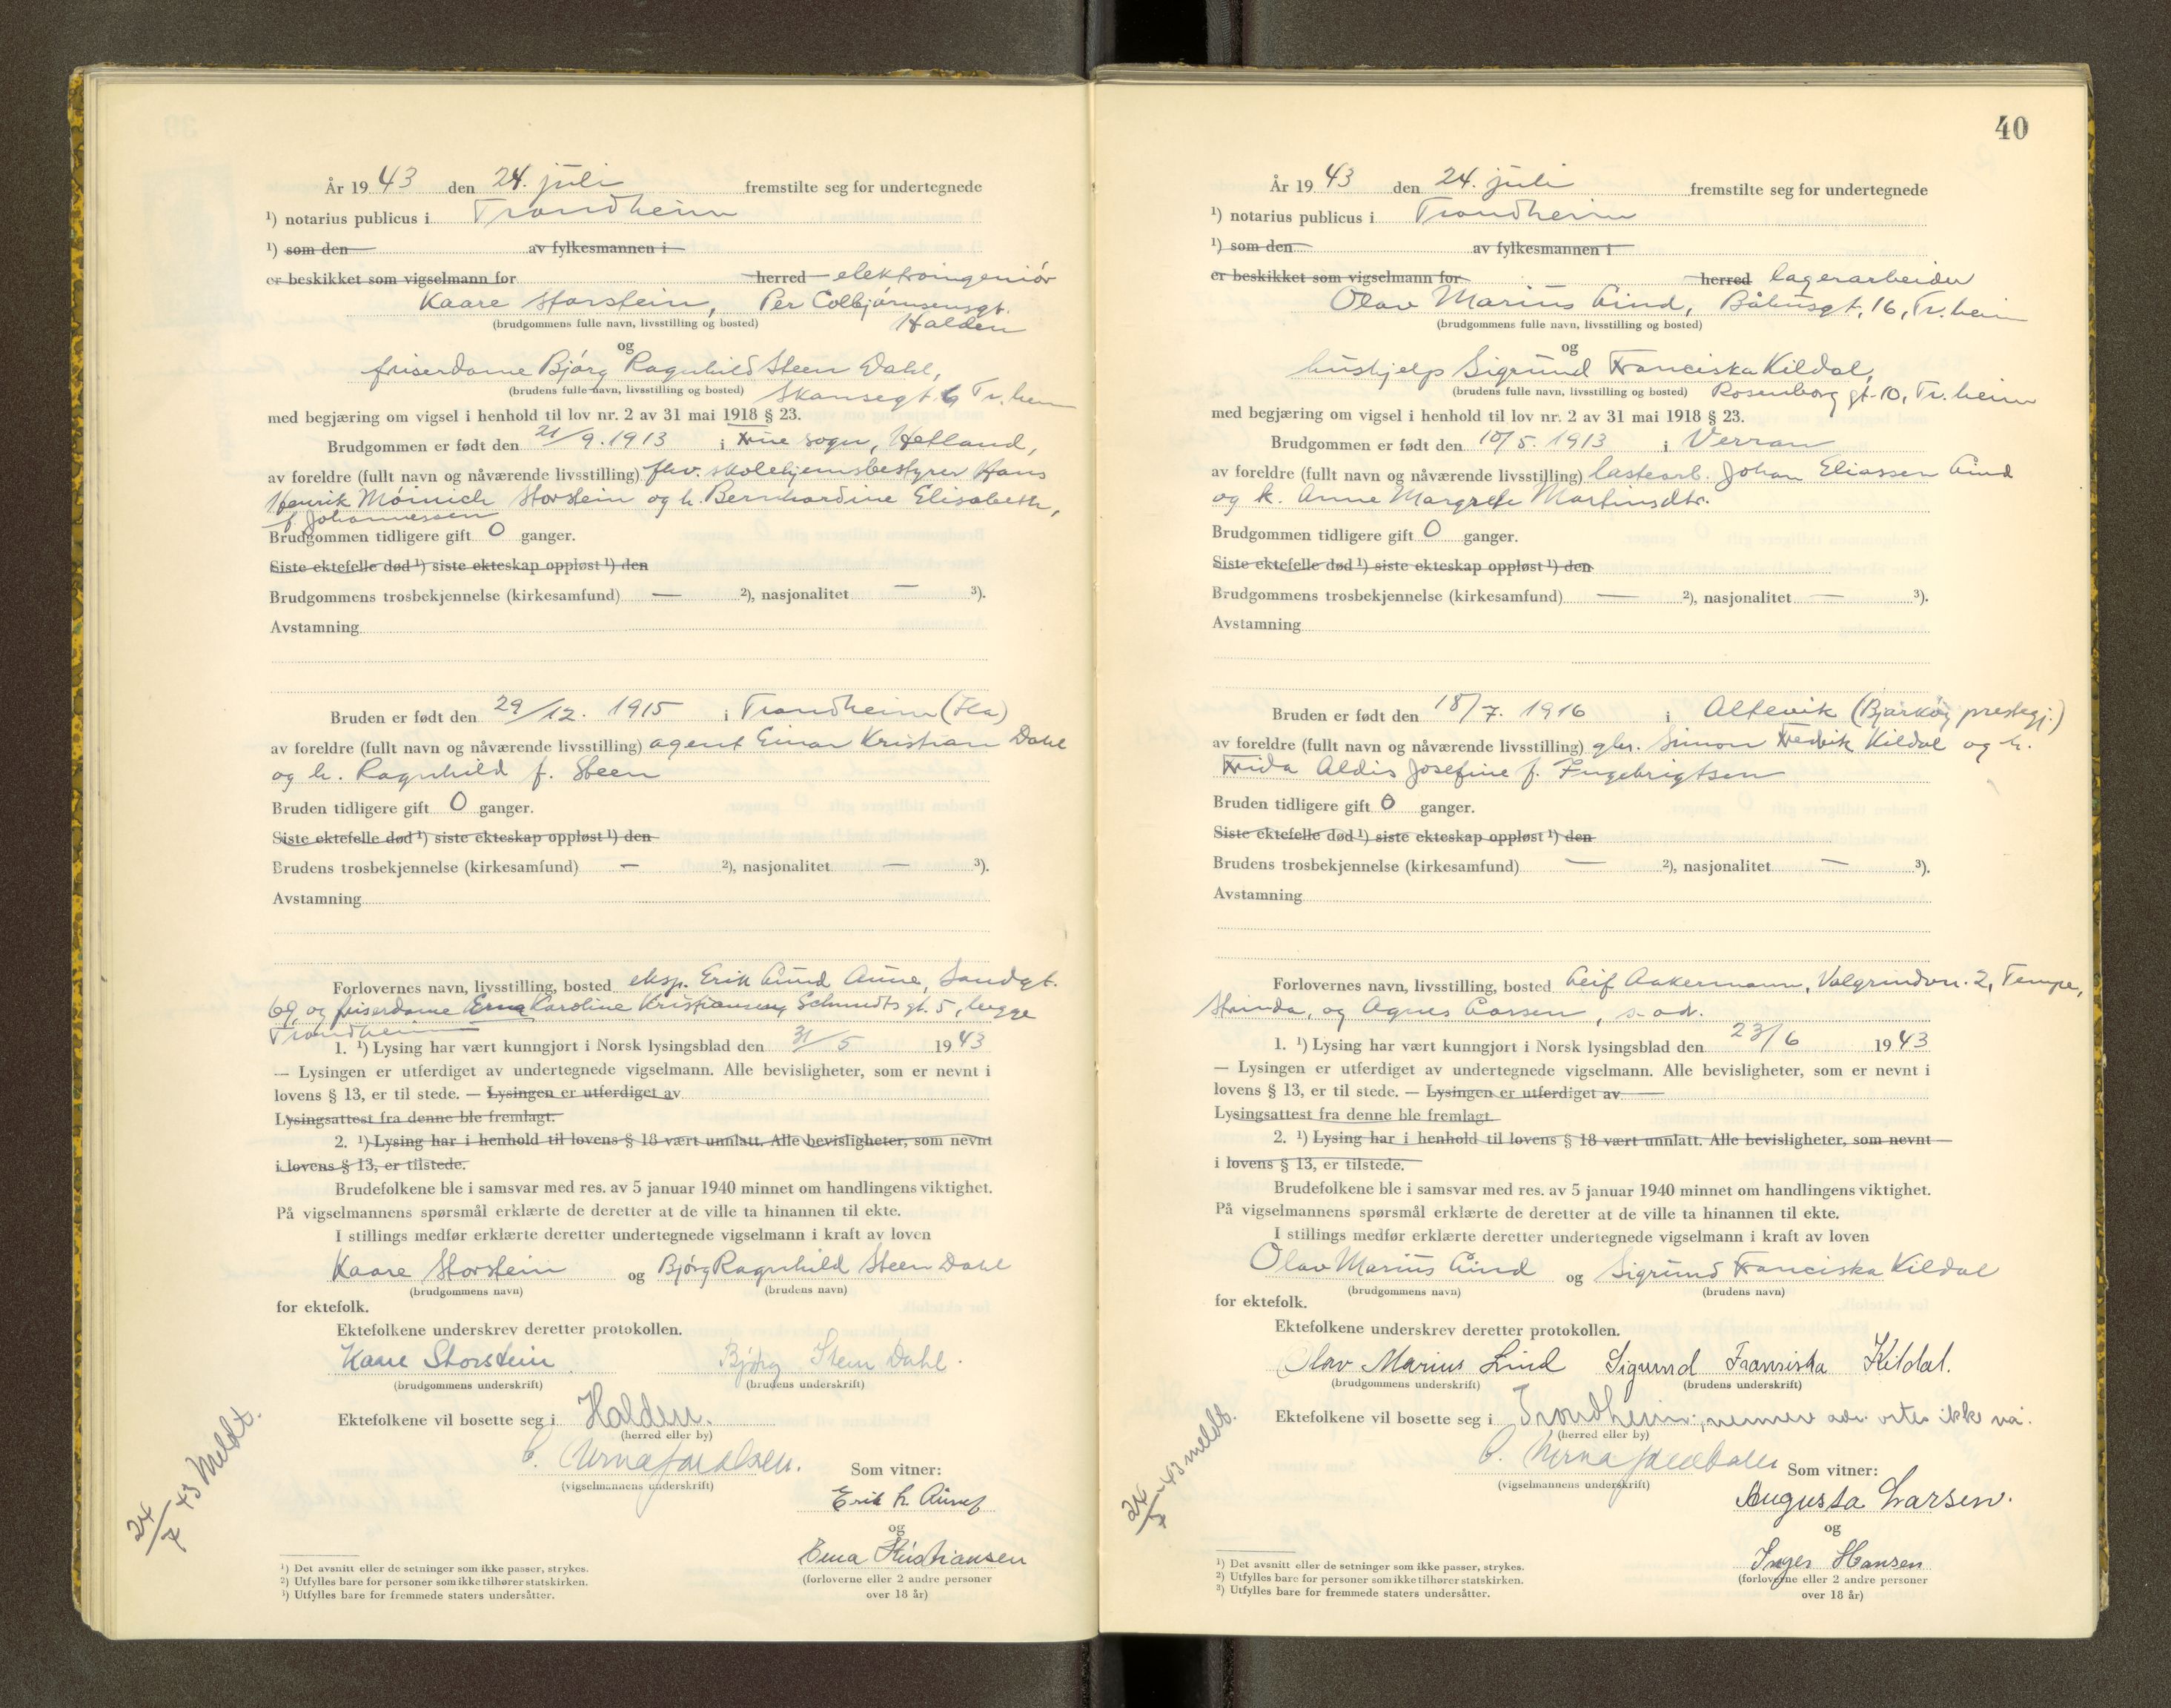 År 19 43 den 24. juli fremstilte seg for undertegnede
¹) notarius publicus i Trondheim
¹) som den av fylkesmannen i
er beskikket som vigselmann for herred elektroingeniør
Kaare Storstein, Per Colbjørnsensgt.
(brudgommens fulle navn, livsstilling og bosted) Halden
og
friserdame Bjørg Ragnhild Steen Dahl,
(brudens fulle navn, livsstilling og bosted) Skansegt. 6 Tr.heim
med begjæring om vigsel i henhold til lov nr. 2 av 31 mai 1918 § 23.
Brudgommen er født den 21/9. 1913 i Frue sogn, Hetland,
av foreldre (fullt navn og nåværende livsstilling) fhv. skolehjemsbestyrer Hans
Henrik Møinich Storstein og h. Bernhardine Elisabeth,
f. Johannessen
Brudgommen tidligere gift 0 ganger.
Siste ektefelle død ¹) siste ekteskap oppløst ¹) den
Brudgommens trosbekjennelse (kirkesamfund) — ²), nasjonalitet — ³).
Avstamning
Bruden er født den 29/12. 1915 i Trondheim (Ila)
av foreldre (fullt navn og nåværende livsstilling) agent Einar Kristian Dahl
og h. Ragnhild f. Steen
Bruden tidligere gift 0 ganger.
Siste ektefelle død ¹) siste ekteskap oppløst ¹) den
Brudens trosbekjennelse (kirkesamfund) — ²), nasjonalitet — ³).
Avstamning
Forlovernes navn, livsstilling, bosted eksp. Erik Lund Aune, Sandgt.
69, og friserdame Erna Karoline Kristiansen, Schmidts gt. 5, begge
Trondheim
1. ¹) Lysing har vært kunngjort i Norsk lysingsblad den 31/5 19 43
— Lysingen er utferdiget av undertegnede vigselmann. Alle bevisligheter, som er nevnt i
lovens § 13, er til stede. — Lysingen er utferdiget av
Lysingsattest fra denne ble fremlagt.
2. ¹) Lysing har i henhold til lovens § 18 vært unnlatt. Alle bevisligheter, som nevnt
i lovens § 13, er tilstede.
Brudefolkene ble i samsvar med res. av 5 januar 1940 minnet om handlingens viktighet.
På vigselmannens spørsmål erklærte de deretter at de ville ta hinannen til ekte.
I stillings medfør erklærte deretter undertegnede vigselmann i kraft av loven
Kaare Storstein og Bjørg Ragnhild Steen Dahl
(brudgommens navn) (brudens navn)
for ektefolk.
Ektefolkene underskrev deretter protokollen.
Kaare Storstein Bjørg Steen Dahl.
(brudgommens underskrift) (brudens underskrift)
Ektefolkene vil bosette seg i Halden.
(herred eller by)
Som vitner:
(vigselmannens underskrift)
Erik L. Aune
og
Erna Kristiansen
(forloverne eller 2 andre personer
over 18 år)
24/7 43 Meldt.
¹) Det avsnitt eller de setninger som ikke passer, strykes.
²) Utfylles bare for personer som ikke tilhører statskirken.
³) Utfylles bare for fremmede staters undersåtter.
40
År 19 43 den 24. juli fremstilte seg for undertegnede
¹) notarius publicus i Trondheim
¹) som den av fylkesmannen i
er beskikket som vigselmann for herred lagerarbeider
Olav Marius Lind, Båhusgt. 16, Tr.heim
(brudgommens fulle navn, livsstilling og bosted)
og
hushjelp Sigrund Franciska Kildal,
(brudens fulle navn, livsstilling og bosted) Rosenborg gt. 10, Tr.heim
med begjæring om vigsel i henhold til lov nr. 2 av 31 mai 1918 § 23.
Brudgommen er født den 10/5. 1913 i Verran
av foreldre (fullt navn og nåværende livsstilling) lastearb. Johan Eliassen Lind
og h. Anne Margrete Martinsdtr.
Brudgommen tidligere gift 0 ganger.
Siste ektefelle død ¹) siste ekteskap oppløst ¹) den
Brudgommens trosbekjennelse (kirkesamfund) — ²), nasjonalitet — ³).
Avstamning
Bruden er født den 18/7. 1916 i Altevik (Bjarkøy prestegj.)
av foreldre (fullt navn og nåværende livsstilling) gbr. Simon Fredrik Kildal og h.
Frida Aldis Josefine f. Ingebrigtsen
Bruden tidligere gift 0 ganger.
Siste ektefelle død ¹) siste ekteskap oppløst ¹) den
Brudens trosbekjennelse (kirkesamfund) — ²), nasjonalitet — ³).
Avstamning
Forlovernes navn, livsstilling, bosted Leif Aakermann, Valgrindvn. 2, Tempe,
Strinda, og Agnes Larsen, s. ad.
1. ¹) Lysing har vært kunngjort i Norsk lysingsblad den 23/6 19 43
— Lysingen er utferdiget av undertegnede vigselmann. Alle bevisligheter, som er nevnt i
lovens § 13, er til stede. — Lysingen er utferdiget av
Lysingsattest fra denne ble fremlagt
2. ¹) Lysing har i henhold til lovens § 18 vært unnlatt. Alle bevisligheter, som nevnt
i lovens § 13, er tilstede.
Brudefolkene ble i samsvar med res. av 5 januar 1940 minnet om handlingens viktighet.
På vigselmannens spørsmål erklærte de deretter at de ville ta hinannen til ekte.
I stillings medfør erklærte deretter undertegnede vigselmann i kraft av loven
Olav Marius Lind og Sigrund Franciska Kildal
(brudgommens navn) (brudens navn)
for ektefolk.
Ektefolkene underskrev deretter protokollen.
Olav Marius Lind Sigrund Fransiska Kildal.
(brudgommens underskrift) (brudens underskrift)
Ektefolkene vil bosette seg i Trondheim; nermere adr. vites ikke nå.
(herred eller by)
Som vitner:
(vigselmannens underskrift)
Augusta Larsen.
og
Inger Hansen
(forloverne eller 2 andre personer
over 18 år)
24/7 43 meldt.
¹) Det avsnitt eller de setninger som ikke passer, strykes.
²) Utfylles bare for personer som ikke tilhører statskirken.
³) Utfylles bare for fremmede staters undersåtter.